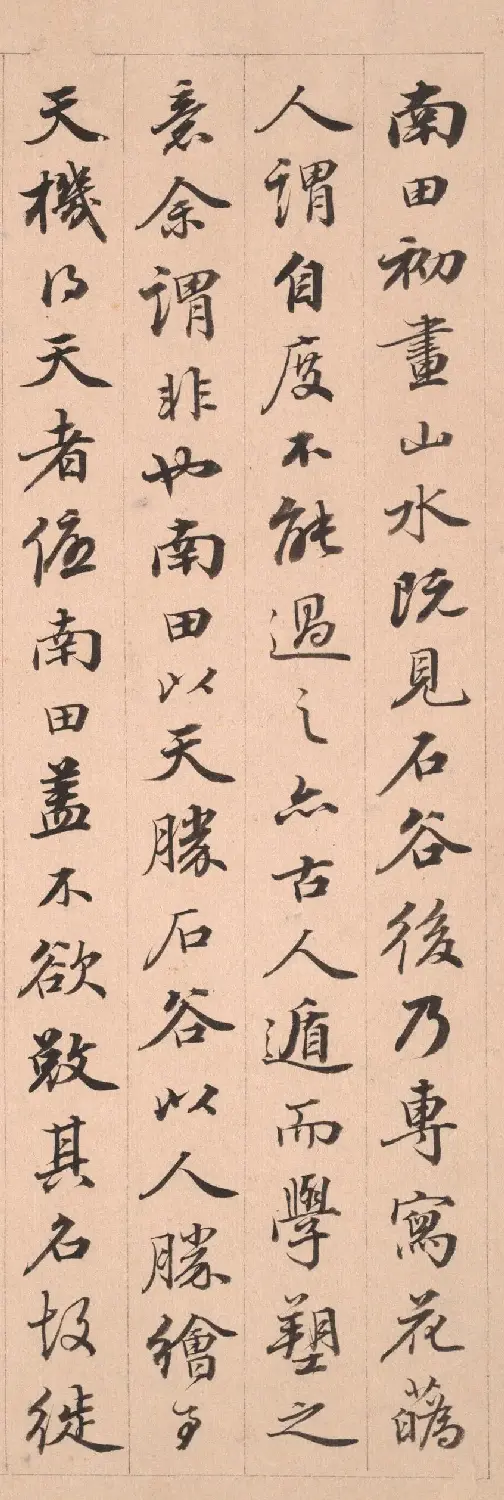 南田初畫山水既見石谷後乃專寫花蘤
人謂自度不能過之亦古人遁而學塑之
意余謂非也南田以天勝石谷以人勝繪事
天機得天者優南田蓋不欲斁其名故徙